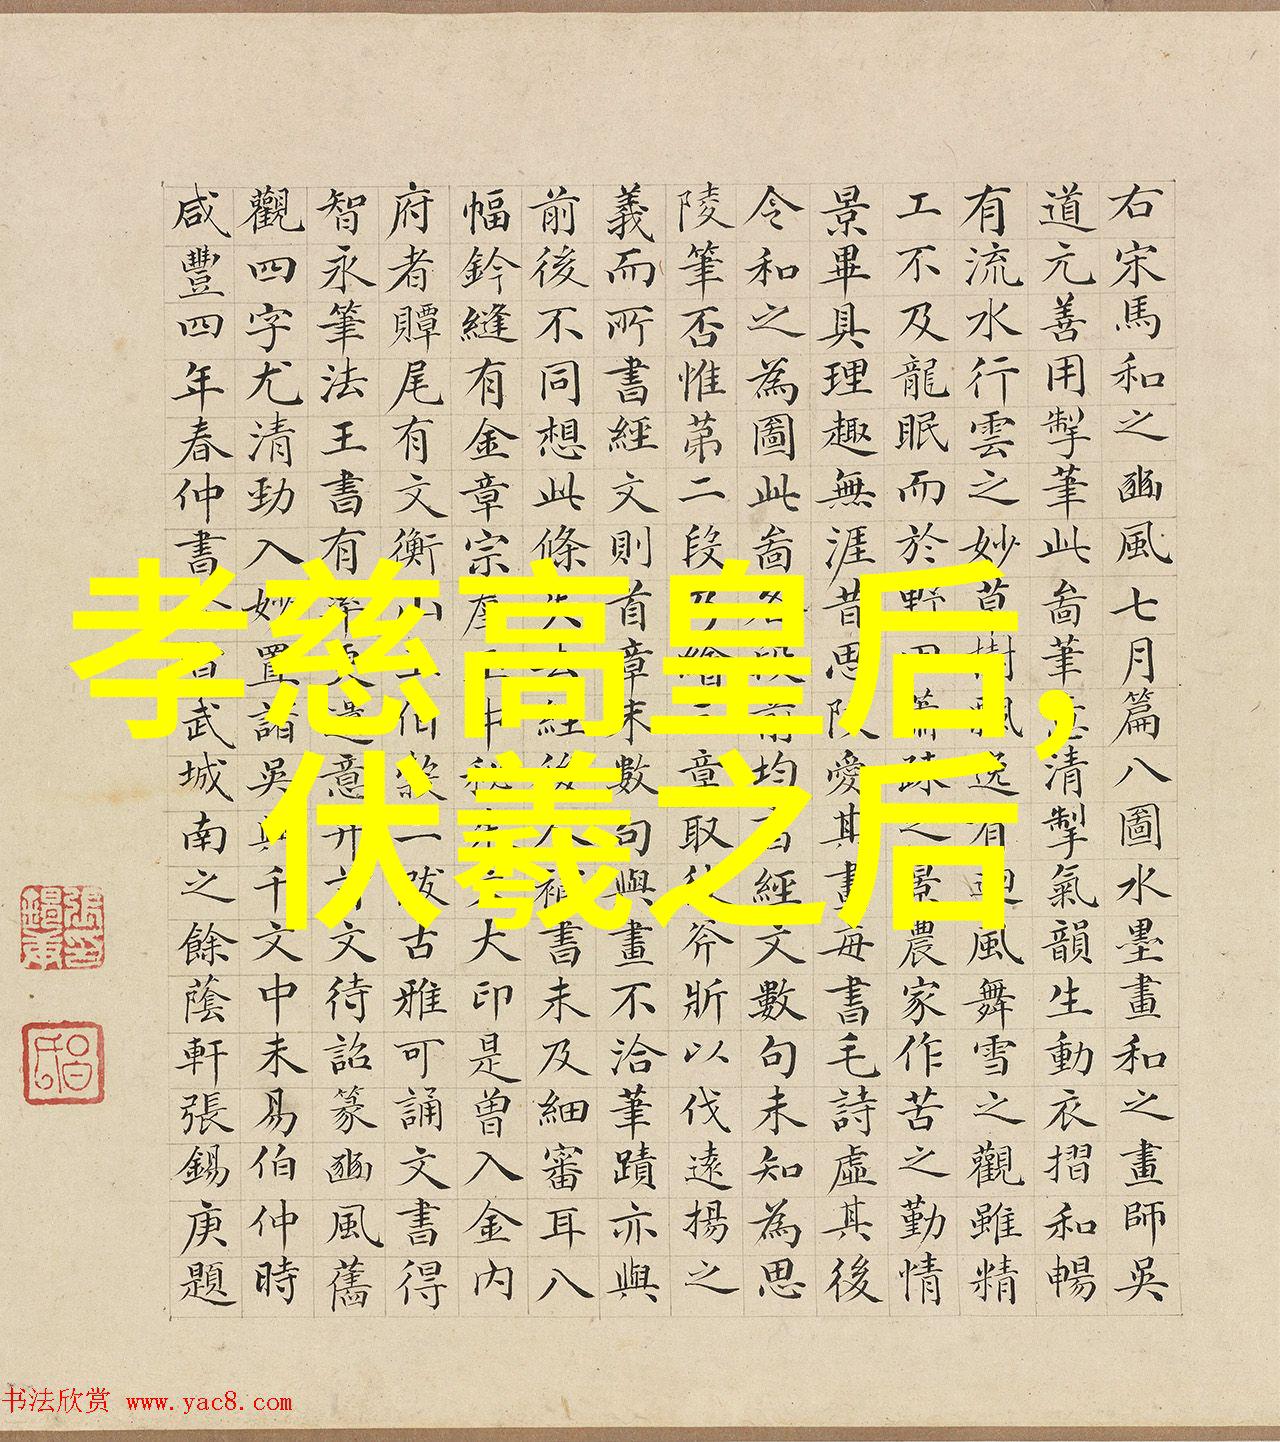 孝慈高皇后,
伏羲之后
右宋馬和之豳風七月篇八圖水墨畫和之畫師吳
道元善用掣筆此啚筆清掣氣韻生動衣摺和暢
有流水行雲之妙草樹飄逸有迴風舞雪之觀雖精
工不及龍眠而於野田蕭疎之景農家作苦之勤情
景畢具理趣無涯昔思陵愛其畫每書毛詩虛其後
令和之為圖此啚各段前均書經文數句未知為思
陵筆否惟苐二段乃繪三章取彼斧斨以伐遠揚之
義而所書經文則首章末數句與畫不洽筆蹟亦與
前後不同想此條失去經後人補書未及細審耳八
幅鈐縫有金章宗大印是曾入金內
府者贉尾有文衡山王伯榖一跋古雅可誦文書得
智永筆法王書有率更遺意文待詔篆豳風舊
觀四字尤清勁入妙置諸吳興千文中未易伯仲時
咸豐四年春仲書武城南之餘蔭軒張錫庚題
书法欣赏 www.yac8.com